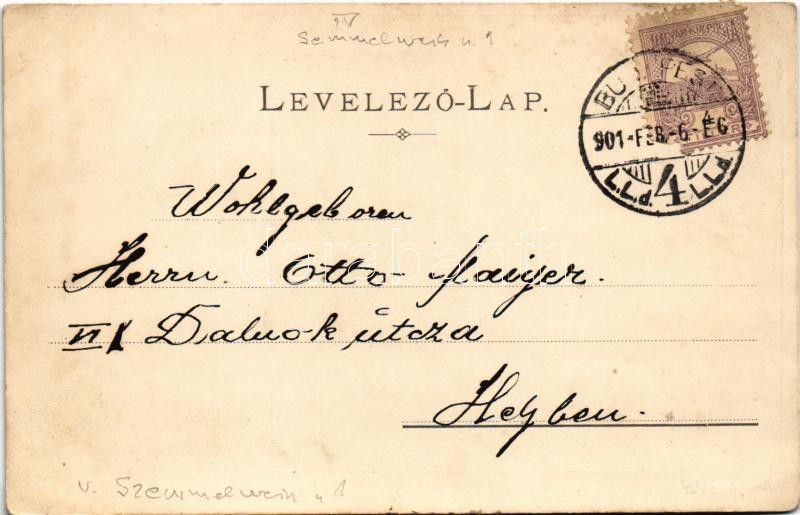 IV
Semmelweis u 1
LEVELEZŐ-LAP.
MAGYAR KIR. POSTA
BUDAPEST
901-FEB.-6-E6
L.L.d. 4 L.L.d.
Wohlgeboren
Herrn. Otto Maiyer.
VI Dalnok útcza
Helyben.
darabanth
v. Szemmelweis u 1